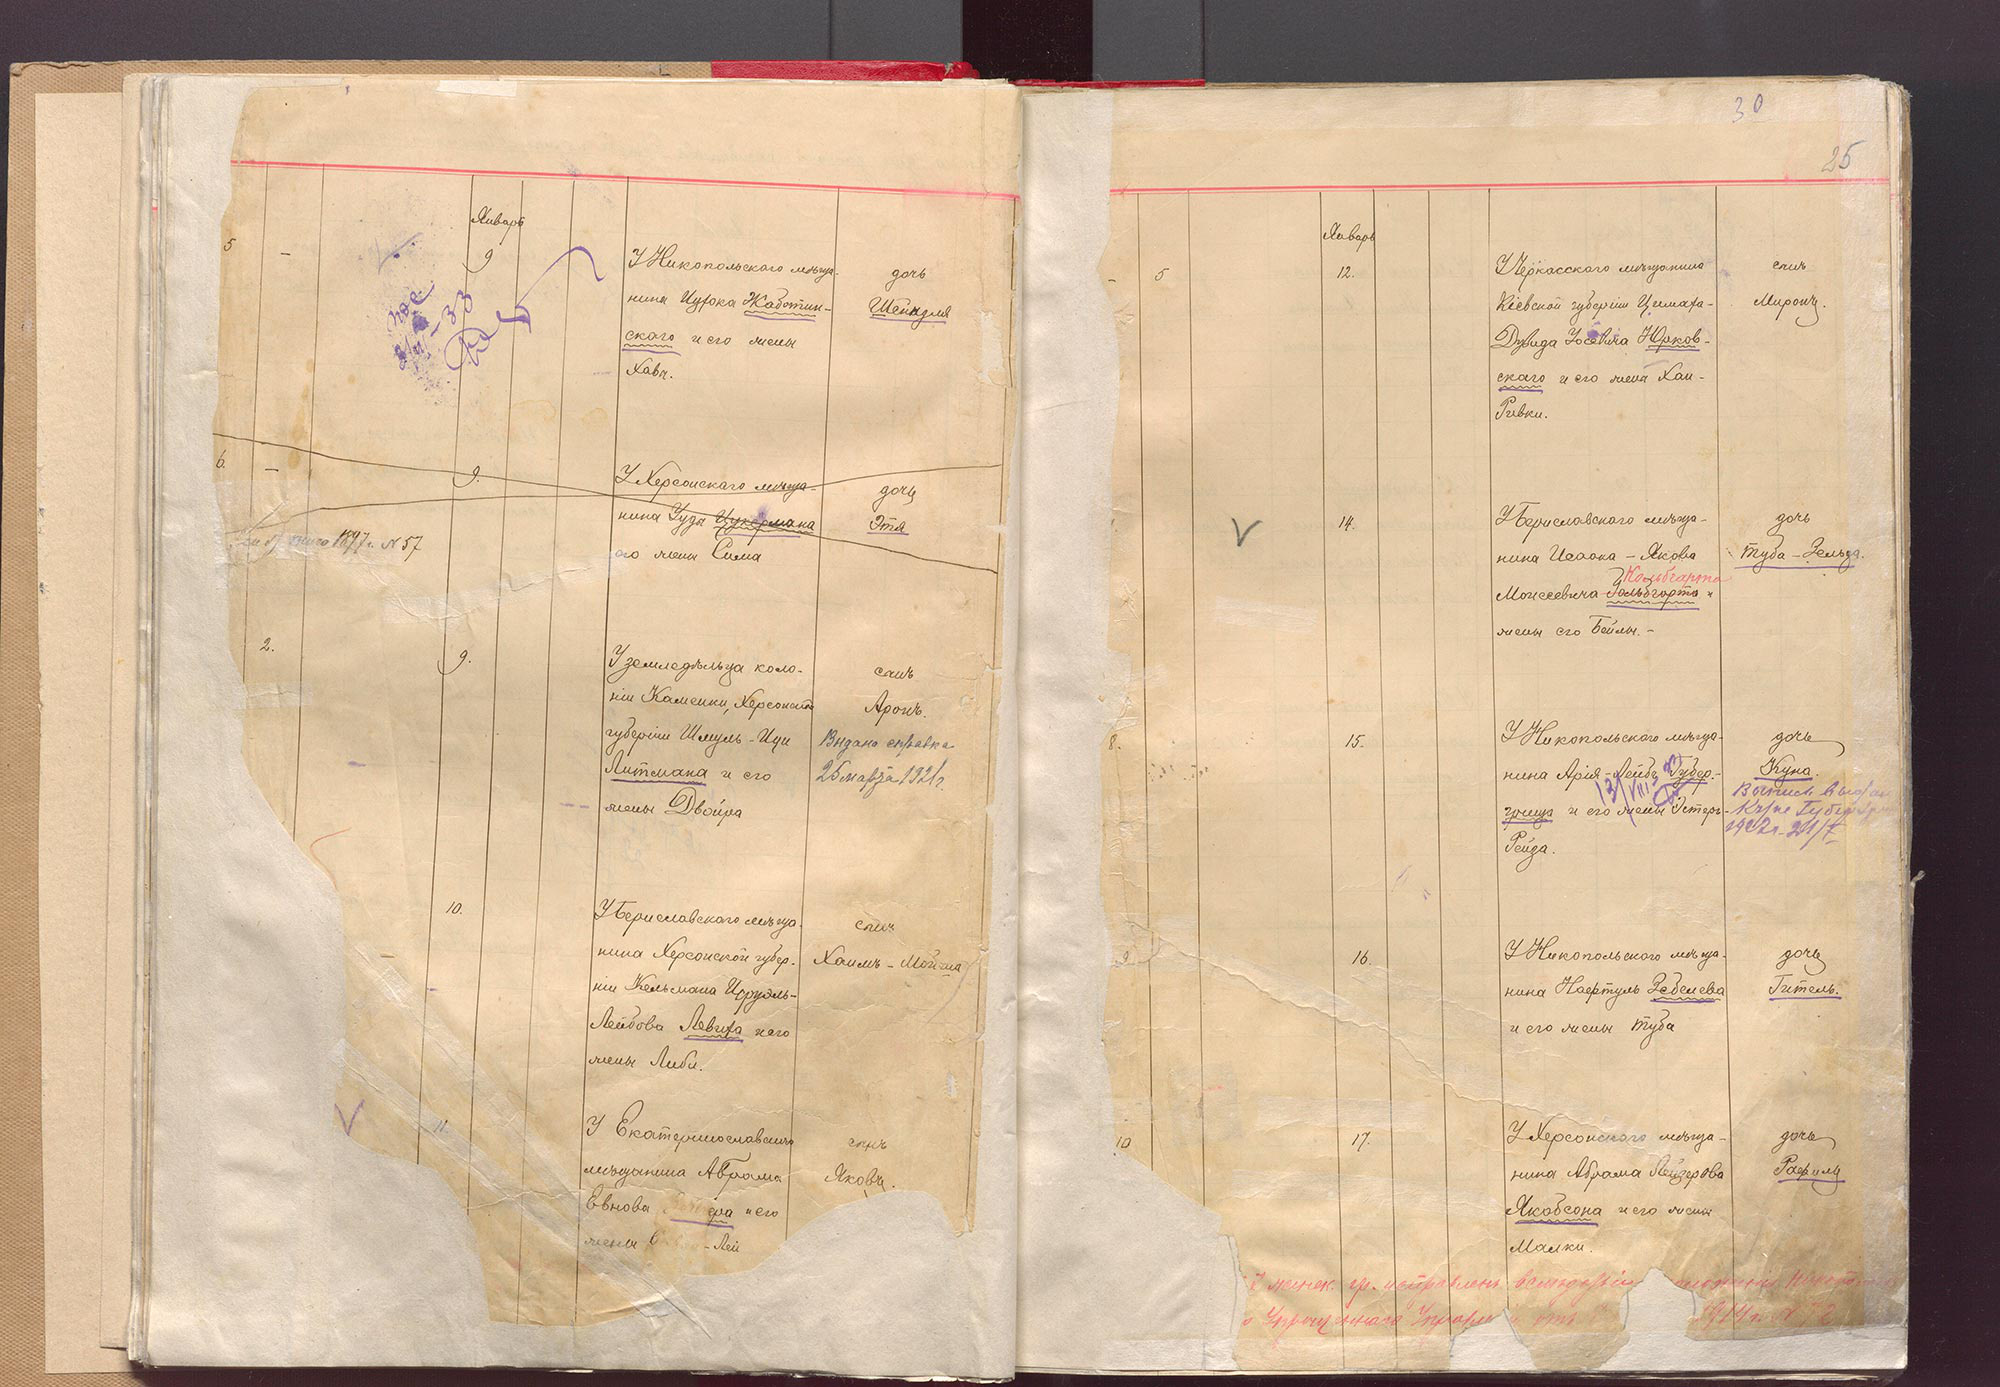 Январь
5
-
9
У Никопольского мѣща-
нина Ицхока Жаботин-
скаго и его жены
Хавы.
дочь
Шейндля
6.
-
9.
У Херсонскаго мѣща-
нина Уды Цукермана
его жены Сима
дочь
Этя
1897 г. № 57
2.
9.
У земледѣльца коло-
ніи Каменки, Херсонской
губерніи Шмуль-Ици
Литмана и его
жены Двойра
сынъ
Аронъ.
Выдана справка
25 марта 1921 г.
10.
У Бериславскаго мѣща-
нина Херсонской губер-
ніи Кельмана Исруэль-
Лейбова Левита и его
жены Либы.
сынъ
Хаимъ-Мойша
11.
У Екатеринославскаго
мѣщанина Абрама
Евнова и его
жены
сынъ
Яковъ.
30
25
Январь
5
12.
У Черкасского мѣщанина
Кіевской губерніи
Дувида Іосевича Юрков-
скаго и его жены Хаи-
Ривки.
сынъ
Миронъ.
14.
У Бериславского мѣща-
нина Исаака-Якова
Кольбгарта
Моисеевича Гольбгарта и
жены его Бейлы.-
дочь
Туба-Зельда.
8.
15.
У Никопольского мѣща-
нина Арія-Лейбъ Губер-
грица и его жены Эстеръ-
Рейза.
дочь
Куна.
Выпись выдан
1927 г. 21/V
9
16.
У Никопольского мѣща-
нина Нафтуль Зебелева
и его жены Туба
дочь
Гитель.
10
17.
У Херсонского мѣща-
нина Абрама Лейзерова
Якобсона и его жены
Малки.
дочь
Рафиль
исправленъ
1914 г. № 72